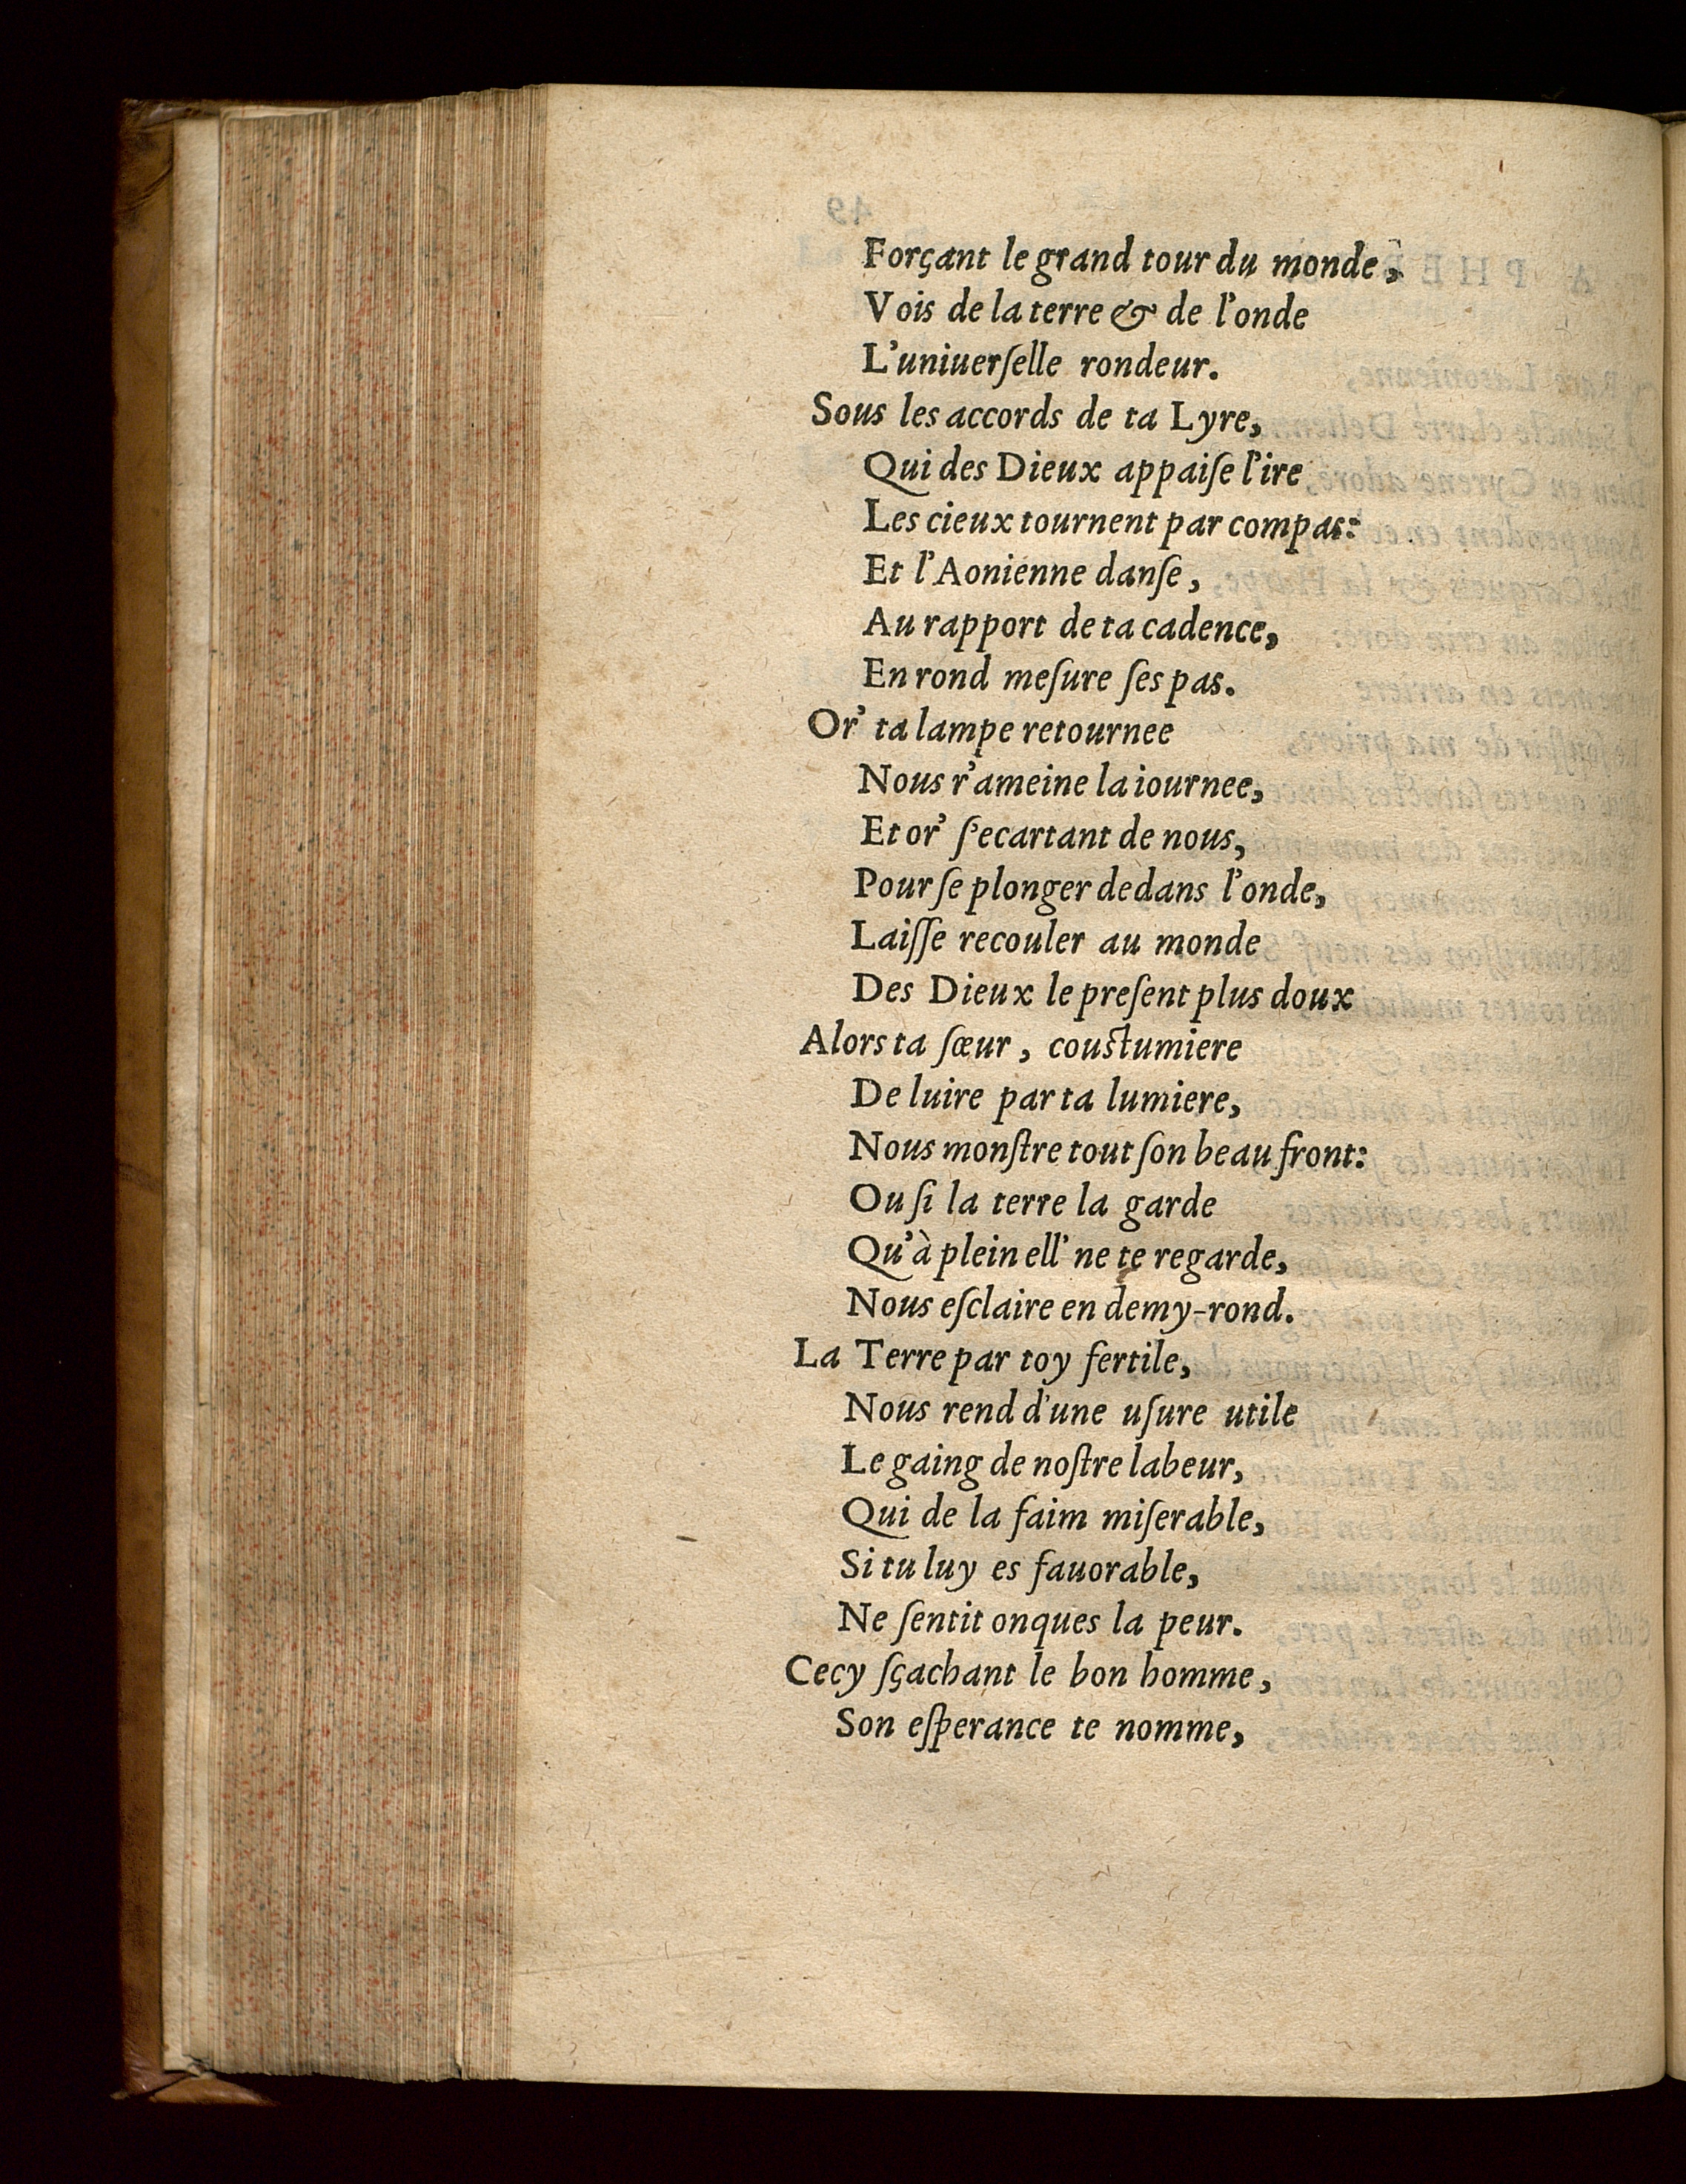 Forçant le grand tour du monde,
Vois de la terre & de l'onde
L'uniuerſelle rondeur.
Sous les accords de ta Lyre,
Qui des Dieux appaiſe l'ire
Les cieux tournent par compas:
Et l'Aonienne danſe,
Au rapport de ta cadence,
En rond meſure ſes pas.
Or' ta lampe retournee
Nous r'ameine la iournee,
Et or' ſ'ecartant de nous,
Pour ſe plonger dedans l'onde,
Laiſſe recouler au monde
Des Dieux le preſent plus doux
Alors ta ſœur, couſtumiere
De luire par ta lumiere,
Nous monſtre tout ſon beau front:
Ou ſi la terre la garde
Qu'à plein ell' ne te regarde,
Nous eſclaire en demy-rond.
La Terre par toy fertile,
Nous rend d'une uſure utile
Le gaing de noſtre labeur,
Qui de la faim miſerable,
Si tu luy es fauorable,
Ne ſentit onques la peur.
Cecy ſçachant le bon homme,
Son eſperance te nomme,